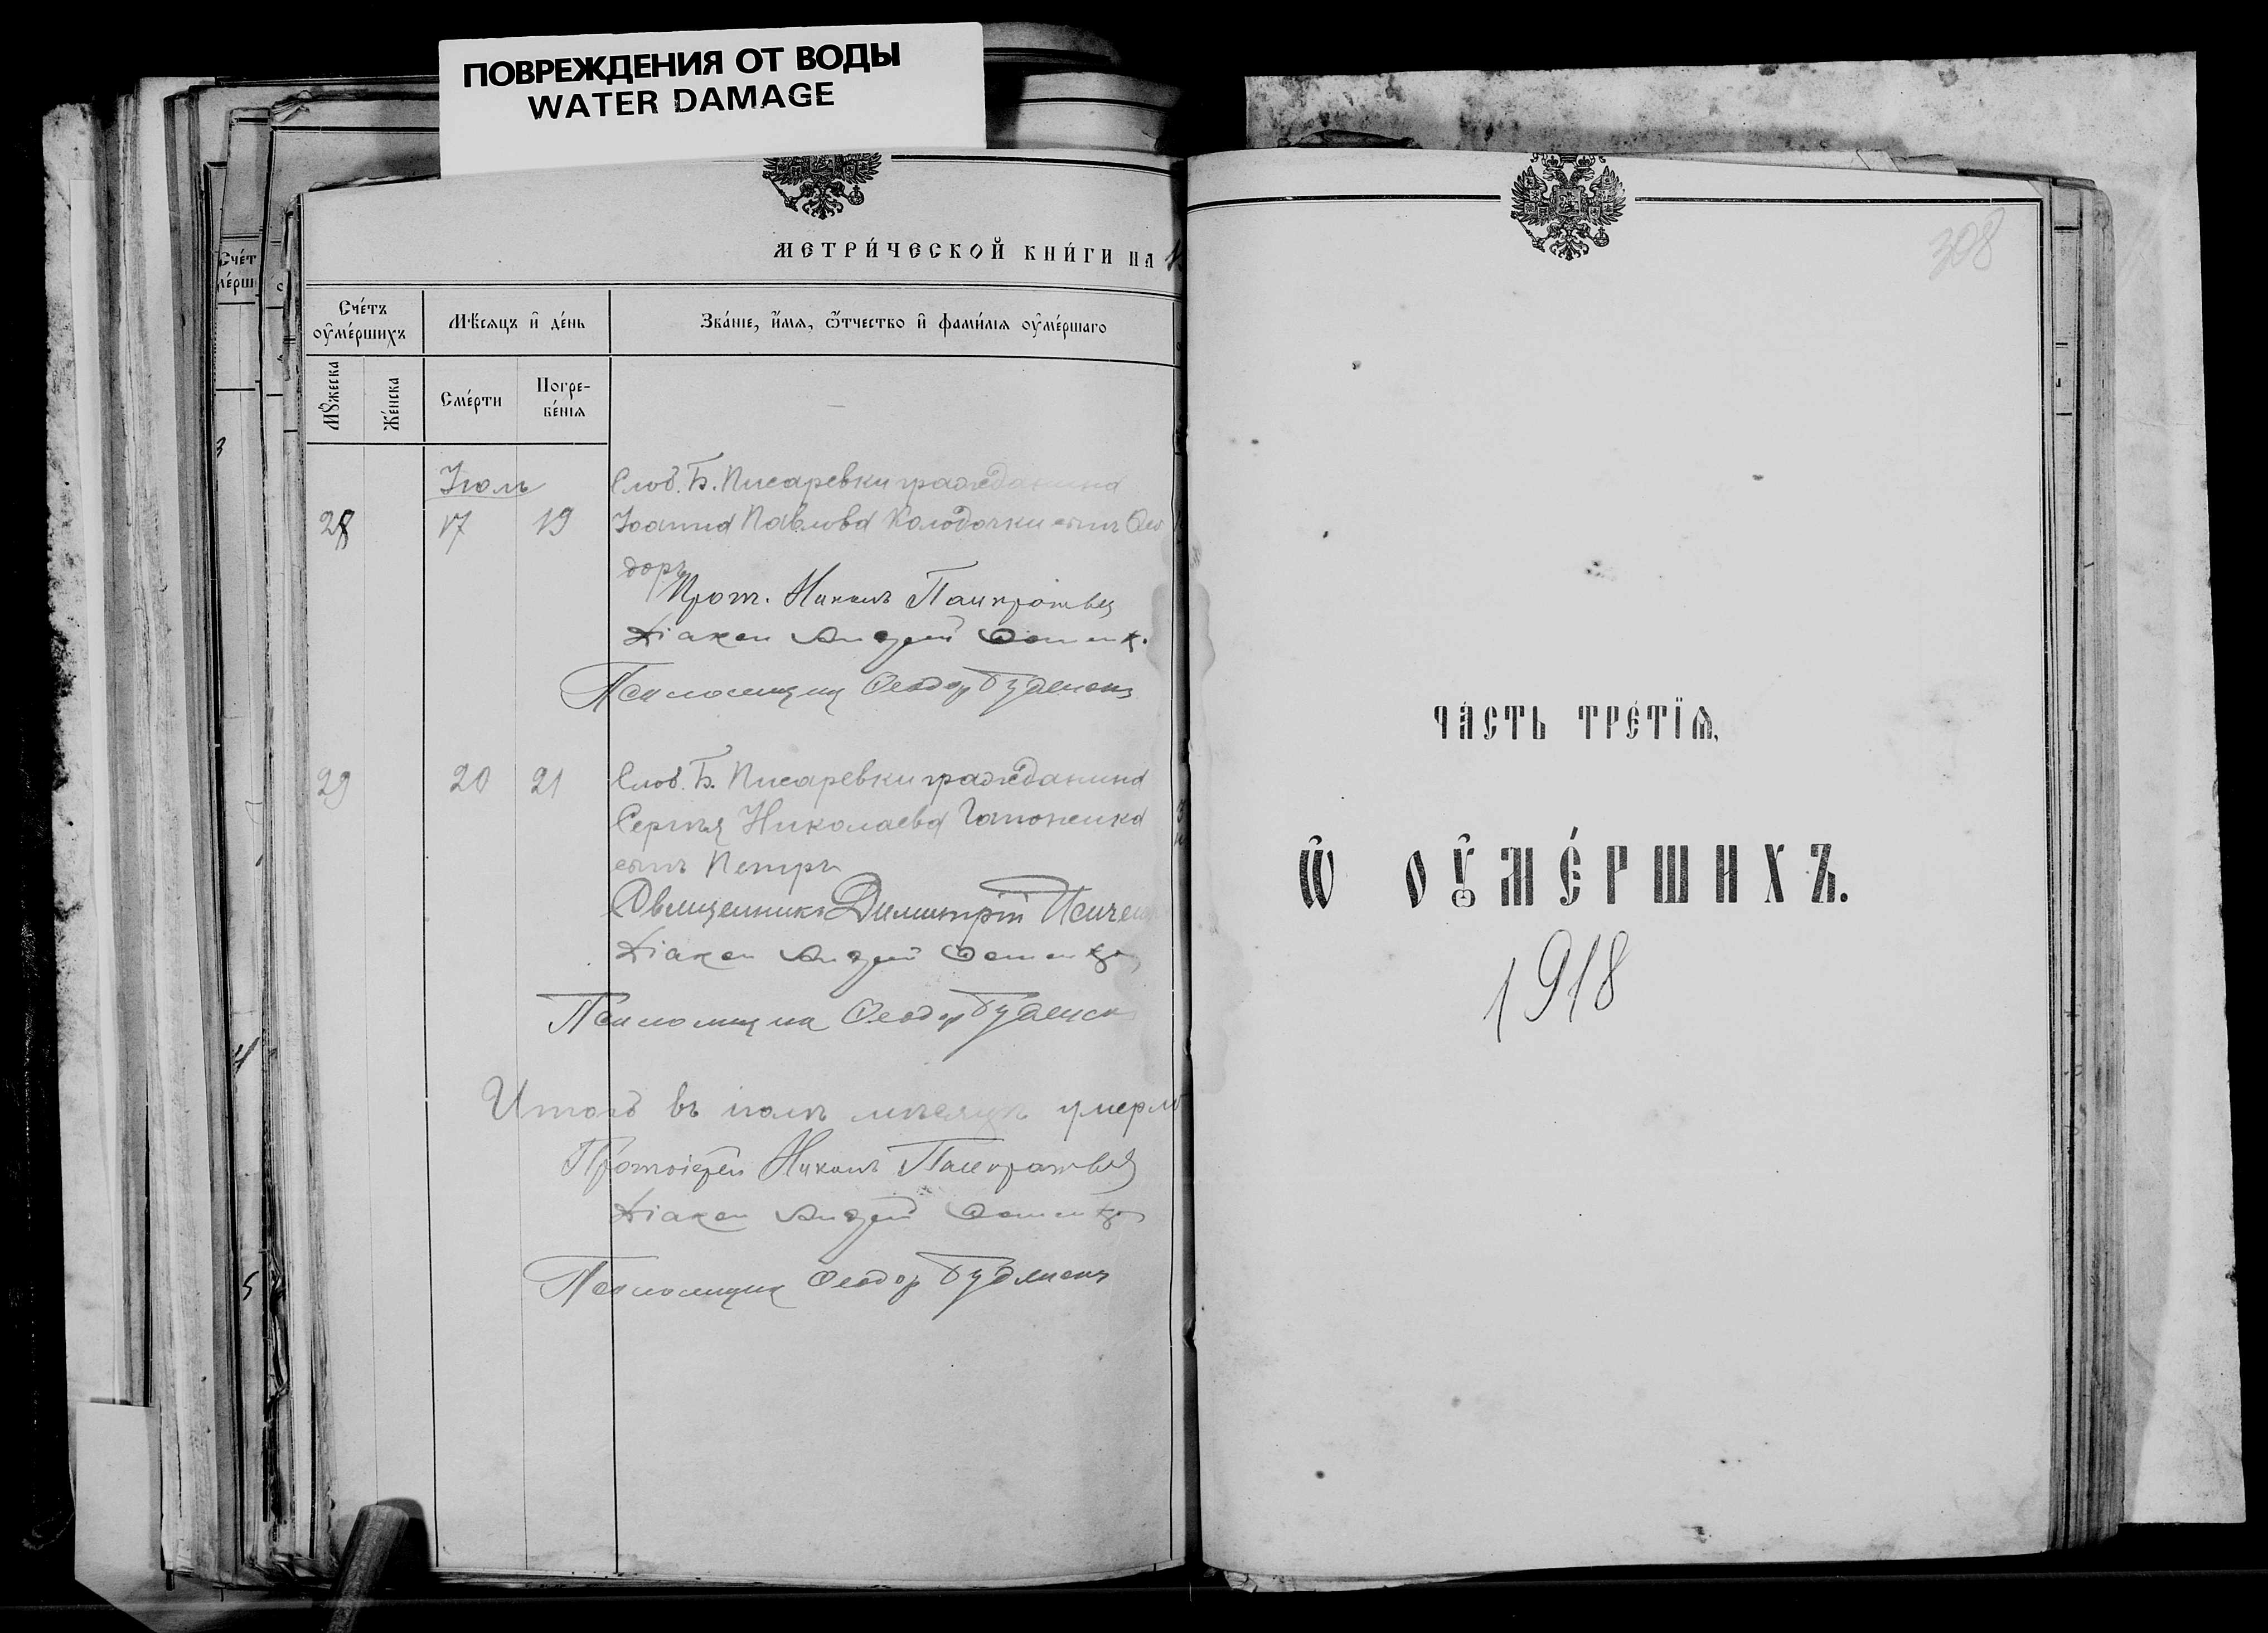 ПОВРЕЖДЕНИЯ ОТ ВОДЫ
WATER DAMAGE
МЕТРИ́ЧЕСКОЙ КНИ́ГИ НА
Сче́тъ оу҆ме́ршихъ
Мѣ́сяцъ и҆ де́нь
Зва́нїе, и҆́мѧ, ѻ҆́тчество и҆ фами́лїѧ оу҆ме́ршаго
Мꙋ́жеска
Же́нска
Сме́рти
Погре-
бе́нїѧ
Іюль
Слоб. Б. Писаревки гражданина
28 17 19 Іоанна Павлова Колодочки сынъ Ѳео
доръ
Прот. Николъ Панкратьев
Діакон Андрей
Псаломщик Ѳеодор
29 20 21 Слоб. Б. Писаревки гражданина
Сергѣя Николаева Гапоненка
сынъ Петръ
Священникъ Димитрій
Діакон Андрей
Псаломщик Ѳеодор
Итого въ іюлѣ мѣсяцѣ умерло
Протоіерей Николъ Панкратьев
Діакон Андрей
Псаломщик Ѳеодор
308
ЧА́СТЬ ТРЕ́ТЇѦ,
Ѽ ОУ҆МЕ́РШИХЪ.
1918